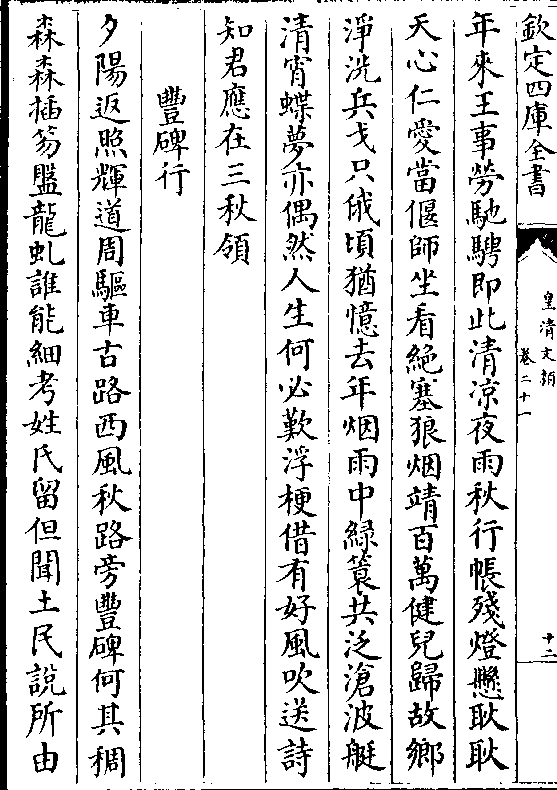 欽定四庫全書
皇清文穎
卷二十一
十二
年來王事勞馳騁即此清涼夜雨秋行帳殘燈懸耿耿
天心仁愛當偃師坐看絕塞狼烟靖百萬健兒歸故鄉
淨洗兵戈只俄頃猶憶去年烟雨中緑簑共泛滄波艇
清宵蝶夢亦偶然人生何必歎浮梗借有好風吹送詩
知君應在三秋領
豐碑行
夕陽返照輝道周驅車古路西風秋路旁豐碑何其稠
森森插笏盤龍虬誰能細考姓氏留但聞土民說所由